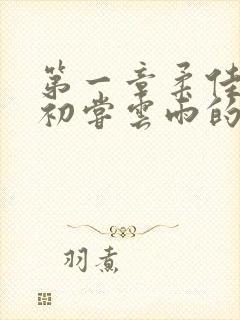 第一章柔佳
初尝雲雨的
羽煮